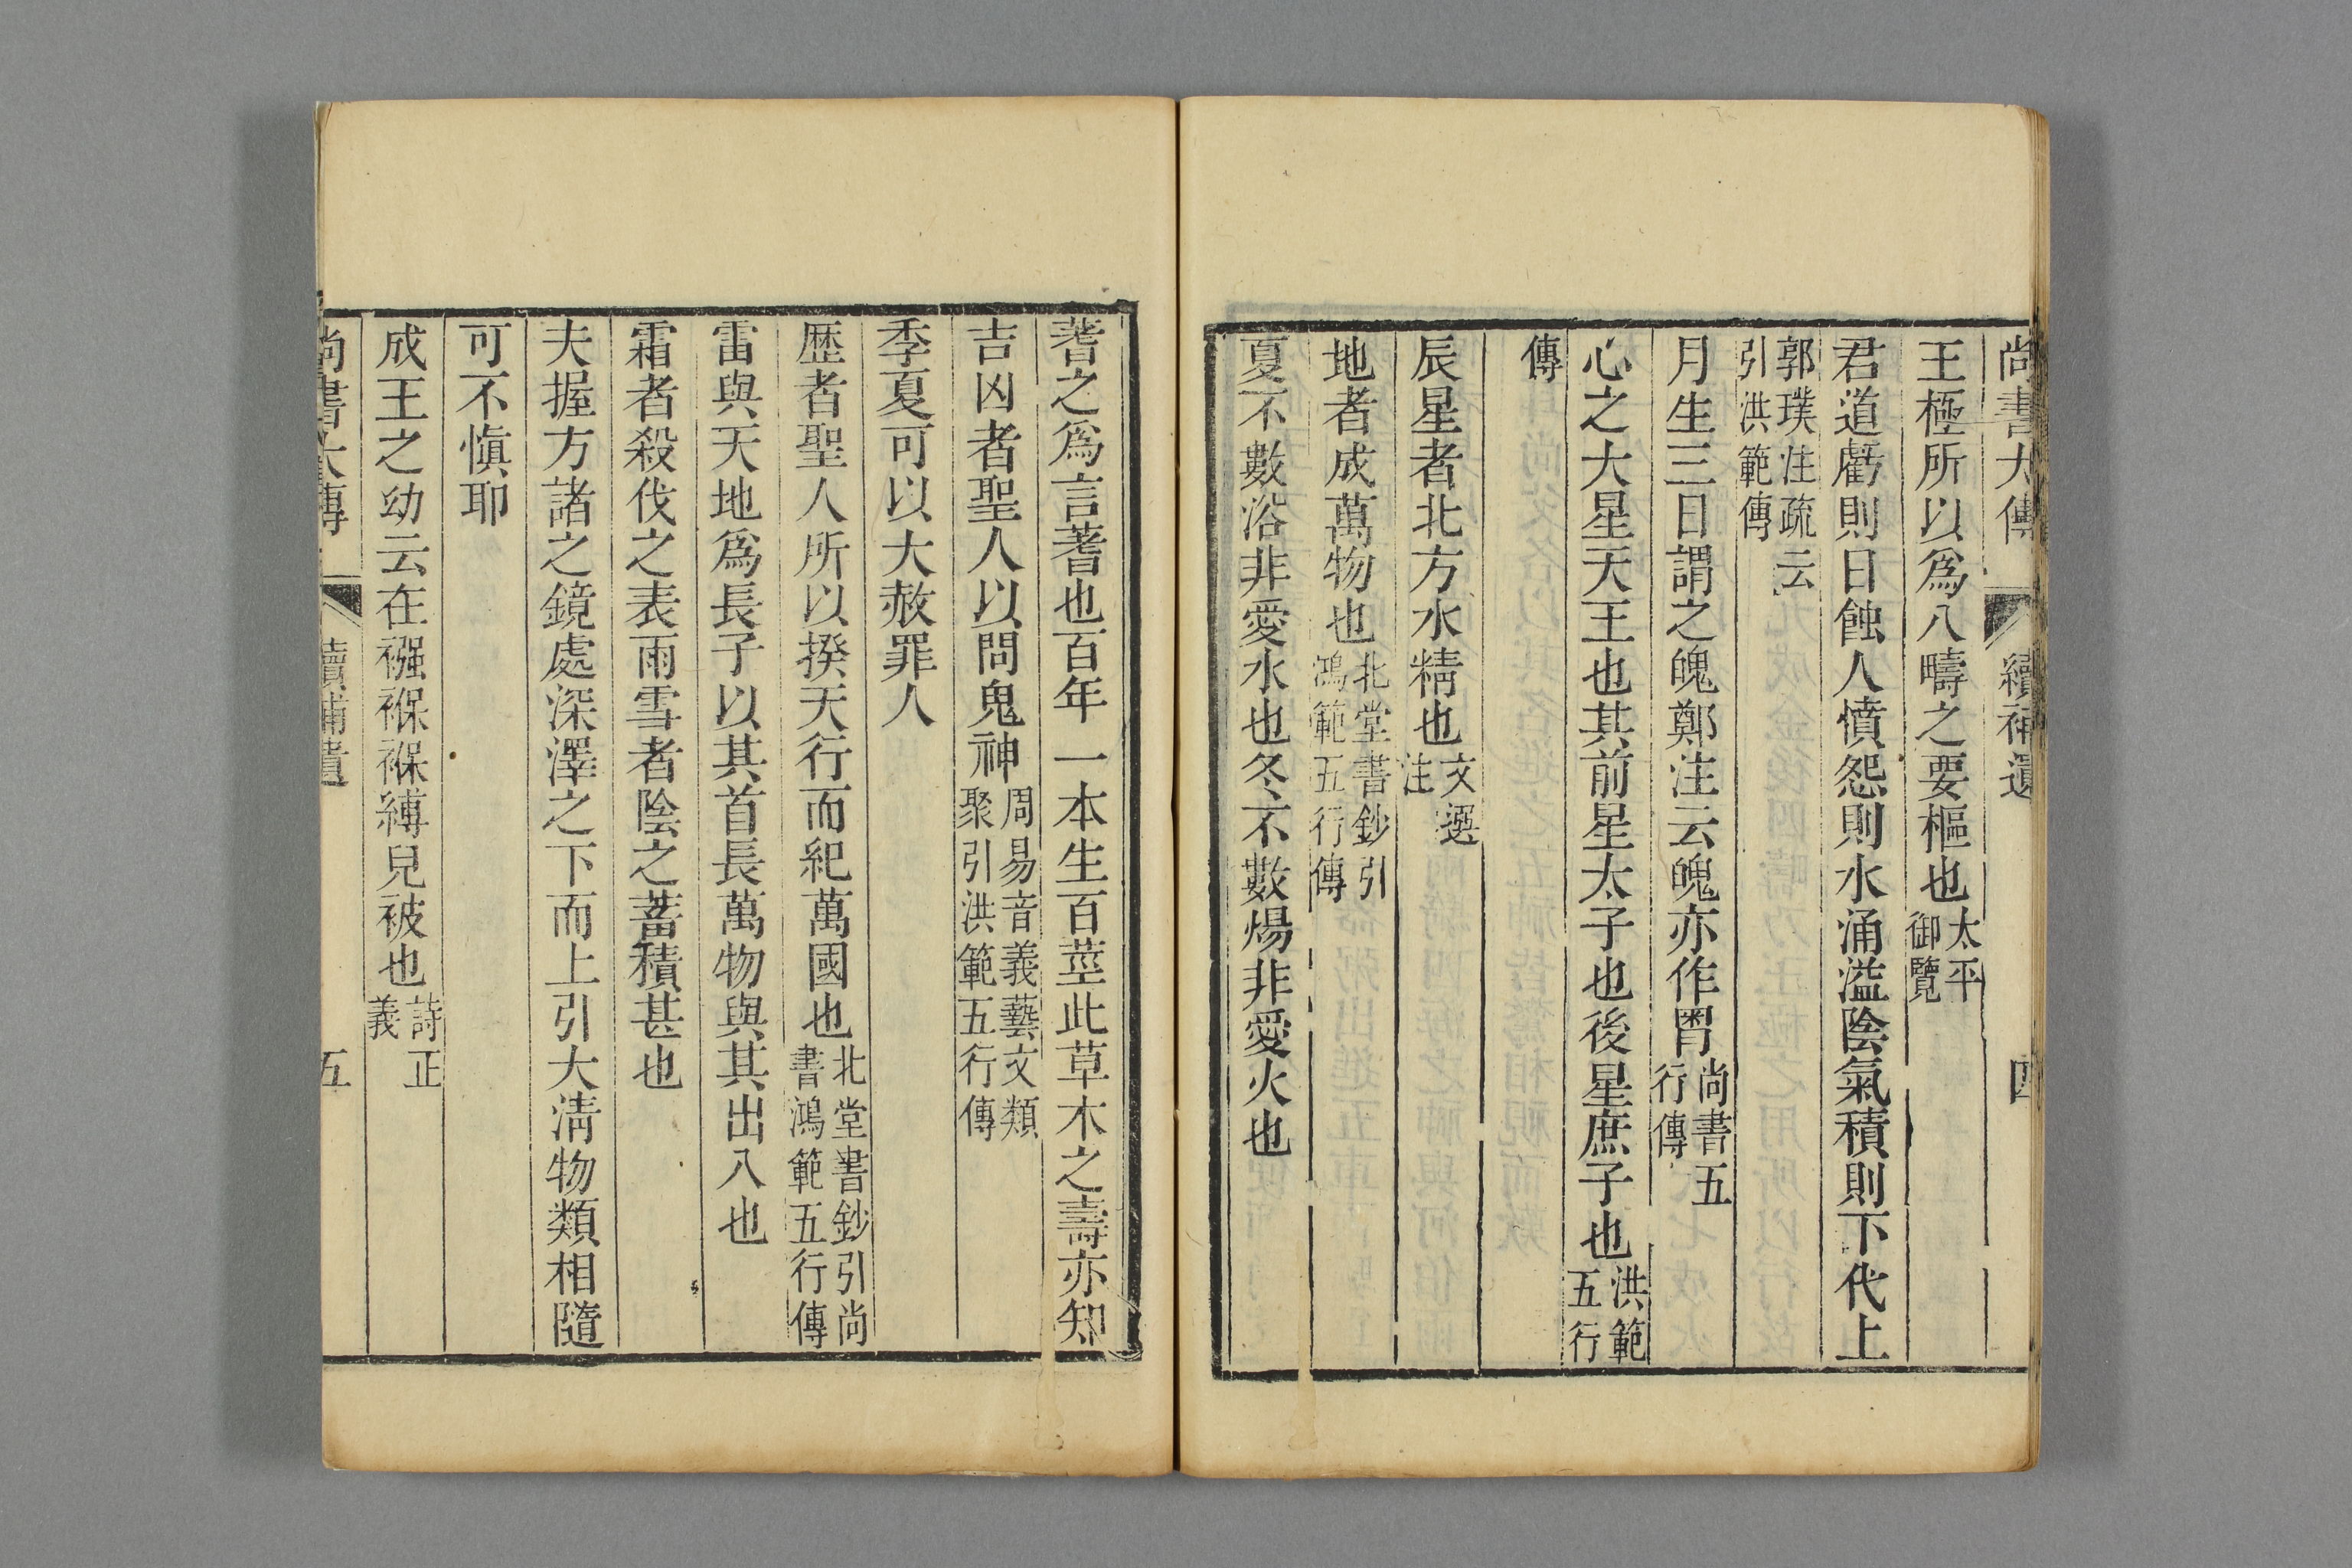 尚書大傳 續補遺 四
王極所以爲八疇之要樞也太平御覽
君道虧則日蝕人憤怨則水涌溢陰氣積則下代上
郭璞注疏云引洪範傳
月生三日謂之魄鄭注云魄亦作䏰尚書五行傳
心之大星天王也其前星太子也後星庶子也洪範五行
傳
辰星者北方水精也文選注
地者成萬物也北堂書鈔引鴻範五行傳
夏不數浴非愛水也冬不數煬非愛火也
蓍之爲言蓍也百年一本生百莖此草木之壽亦知
吉凶者聖人以問鬼神周易音義藝文類聚引洪範五行傳
季夏可以大赦罪人
歷者聖人所以揆天行而紀萬國也北堂書鈔引尚書鴻範五行傳
雷與天地爲長子以其首長萬物與其出入也
霜者殺伐之表雨雪者陰之蓄積甚也
夫握方諸之鏡處深澤之下而上引大淸物類相隨
可不愼耶
成王之幼云在襁褓褓縛兒被也詩正義
尚書大傳 續補遺 五